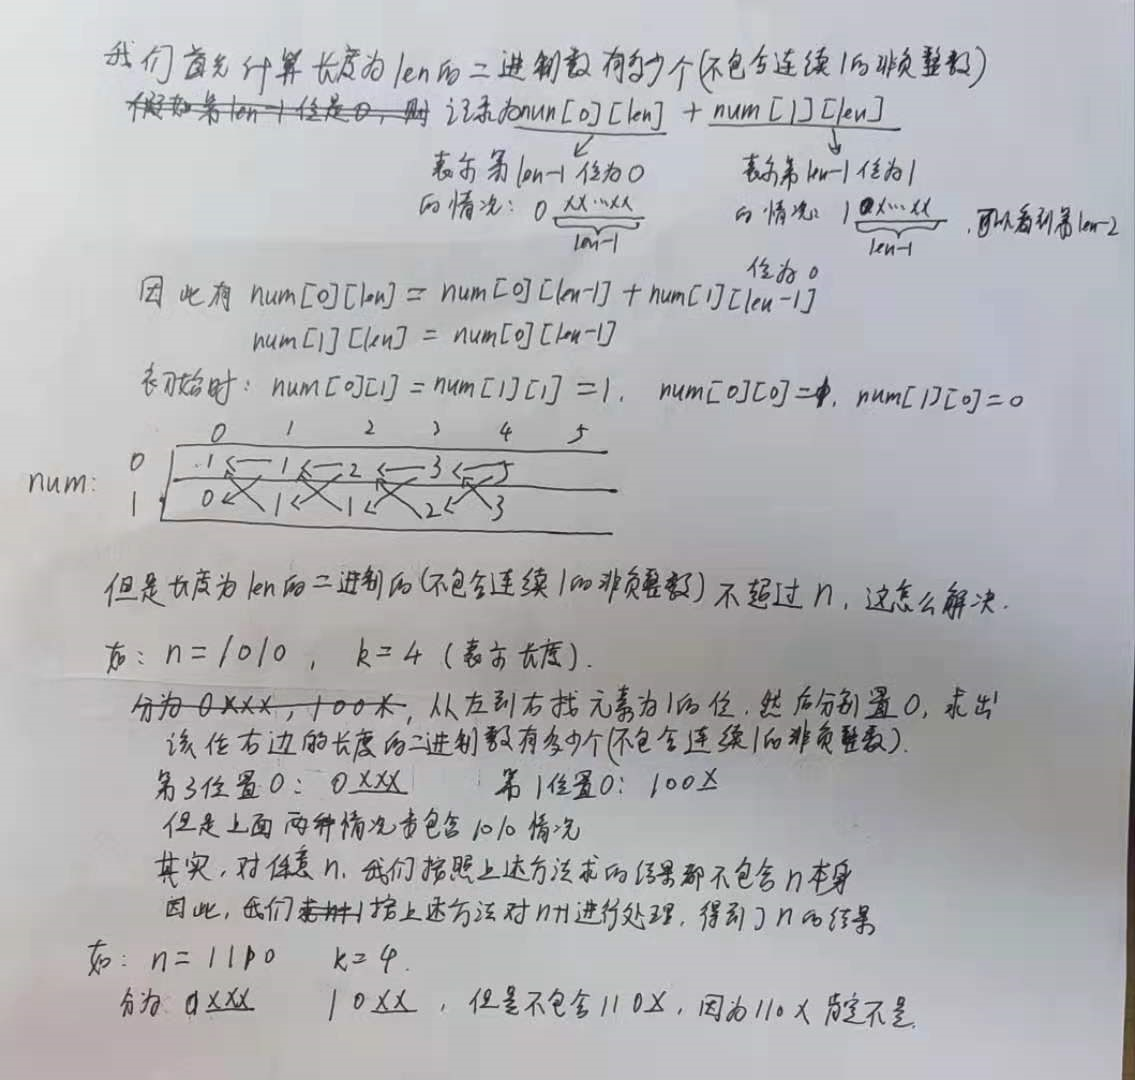 我们首先计算长度为len的二进制数有多少个(不包含连续1的非负整数)
假如第len-1位是0,则 记录为num[0][len] + num[1][len]
表示第len-1位为0 表示第len-1位为1
的情况: 0 xx...xx 的情况: 1 0x...xx ,可以看到第len-2
len-1 len-1
位为0
因此有 num[0][len] = num[0][len-1] + num[1][len-1]
num[1][len] = num[0][len-1]
初始时: num[0][1] = num[1][1] = 1. num[0][0]=1, num[1][0]=0
0 1 2 3 4 5
num: 0 1 1 2 3 5
1 0 1 1 2 3
但是长度为len的二进制的(不包含连续1的非负整数)不超过n,这怎么解决.
如: n=1010, k=4 (表示长度).
分为0xxx, 100x, 从左到右找元素为1的位,然后分别置0,求出
该位右边的长度的二进制数有多少个(不包含连续1的非负整数).
第3位置0: 0xxx 第1位置0: 100x
但是上面两种情况未包含1010情况
其实,对任意n,我们按照上述方法求的结果都不包含n本身
因此,我们按上述方法对n+1进行处理,得到了n的结果
如: n=1110 k=4.
分为: 0xxx 10xx, 但是不包含110x,因为110x肯定不是.